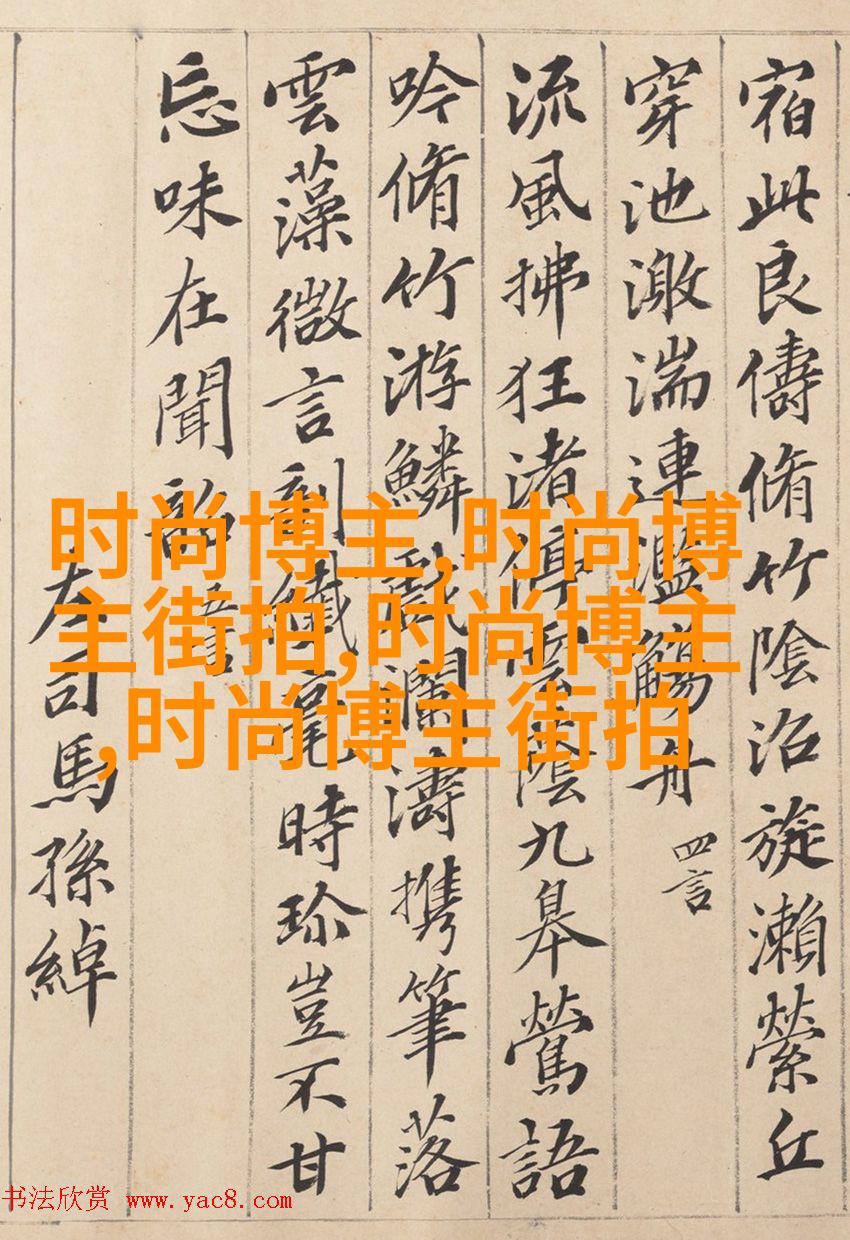 宿此良儔脩竹陰沼旋瀨縈丘
穿池激湍連濫觴舟 四言
流風拂狂渚停雲陰九皋鶯語
吟脩竹游鱗戲瀾濤携筆落
雲藻微言剖纖毫時珎豈不甘
忘味在聞韶 五言
左司馬孫綽
时尚博主,时尚博
主街拍,时尚博主
,时尚博主街拍
书法欣赏 www.yac8.com